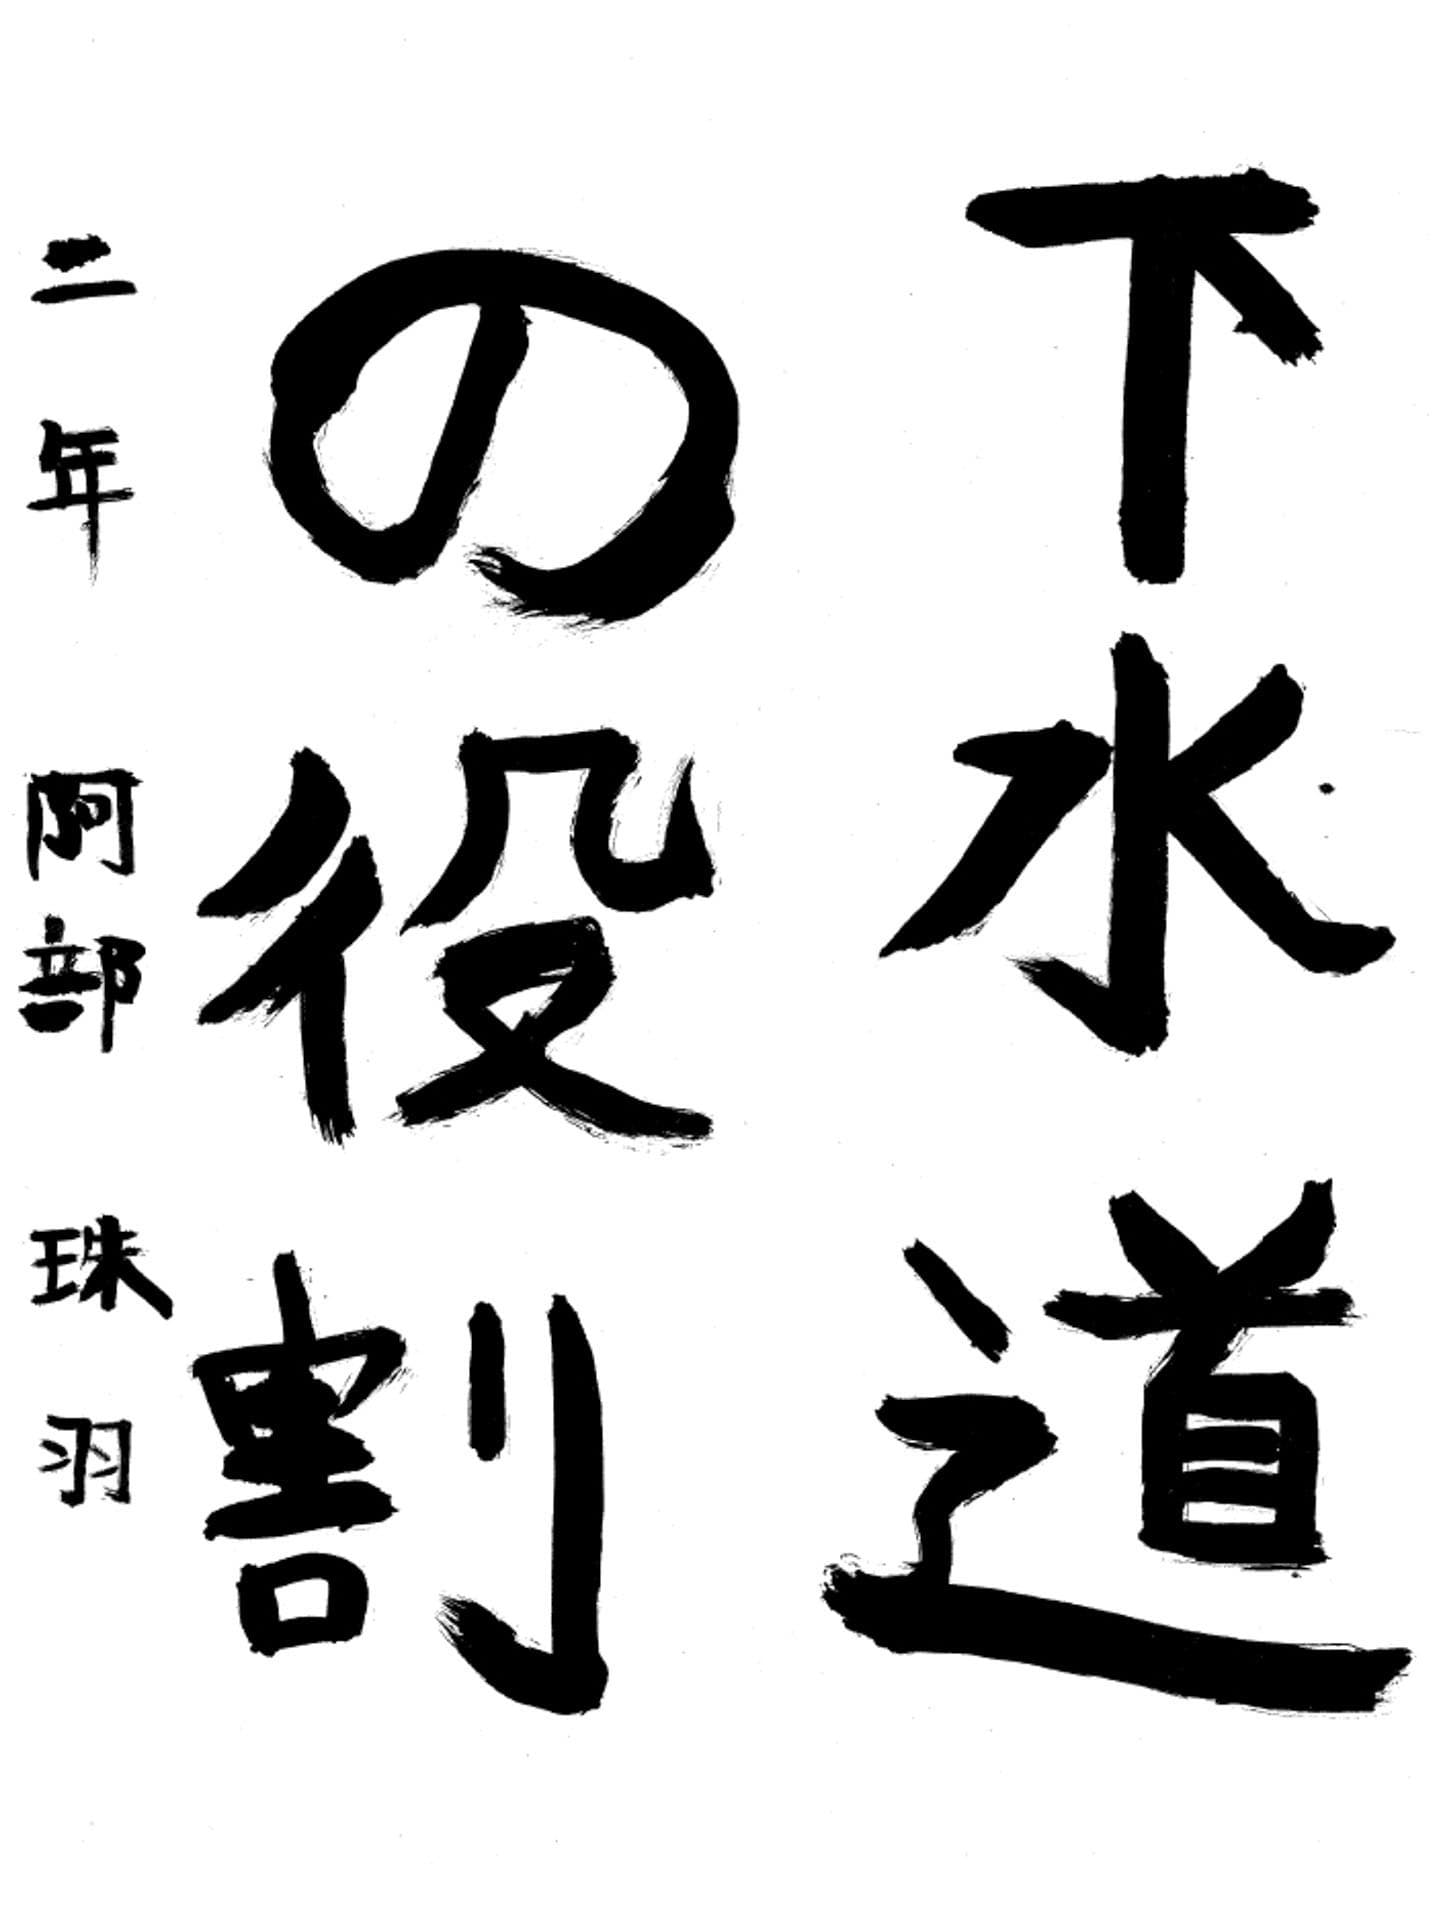 下水道
の役割
二年 阿部 珠羽